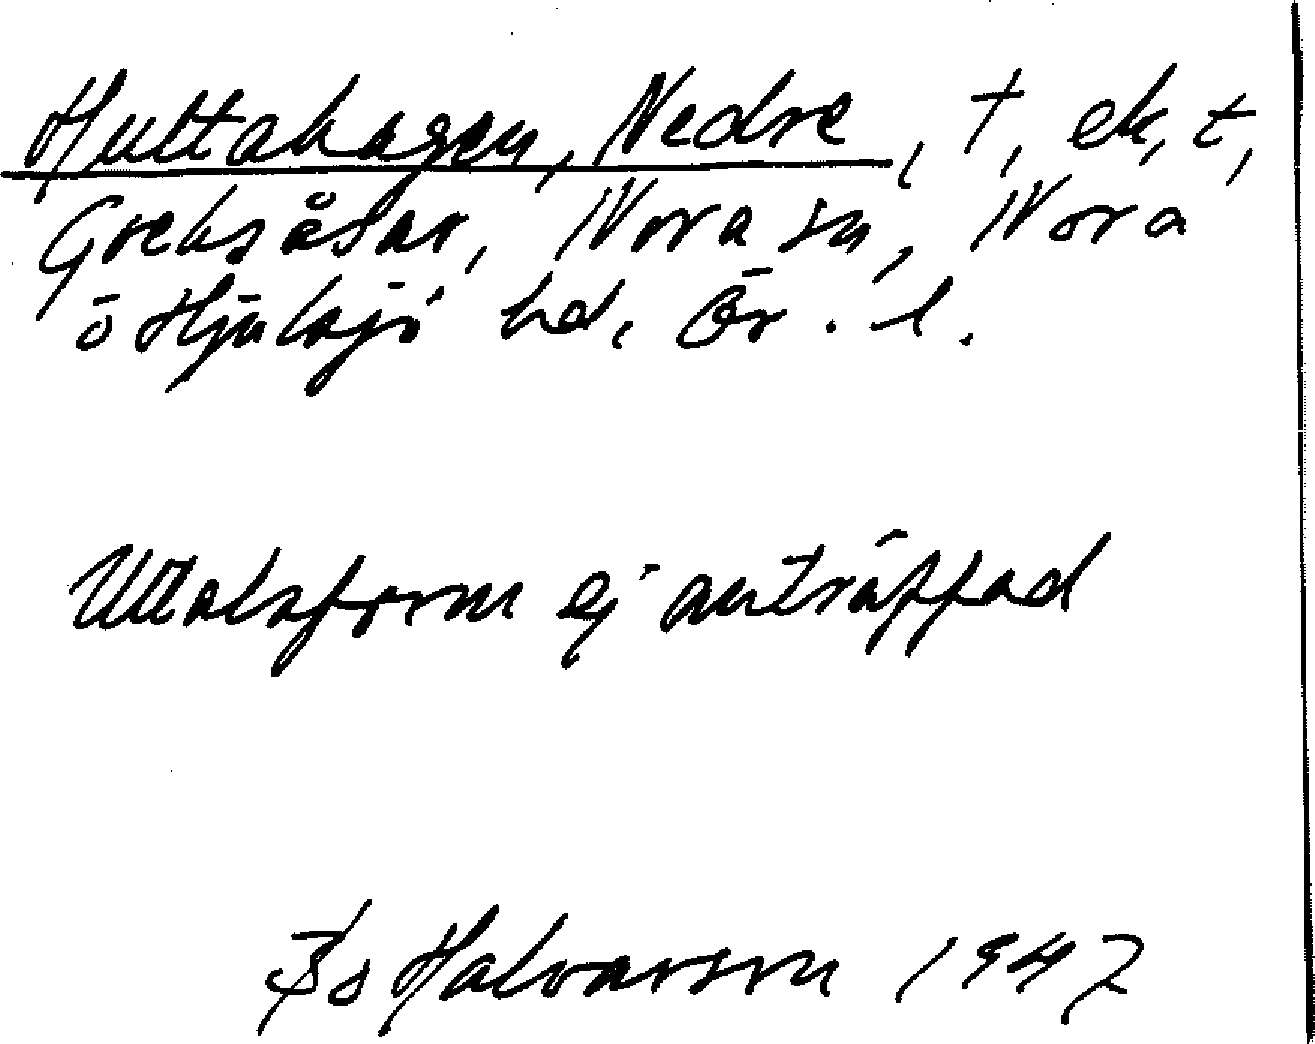 Hultahagen, Nedre, †, ek, t,
Greksåsar, Nora sn, Nora
o Hjulsjö hd, Ör. l.
Uttalsform ej anträffad
Halvarson 1947